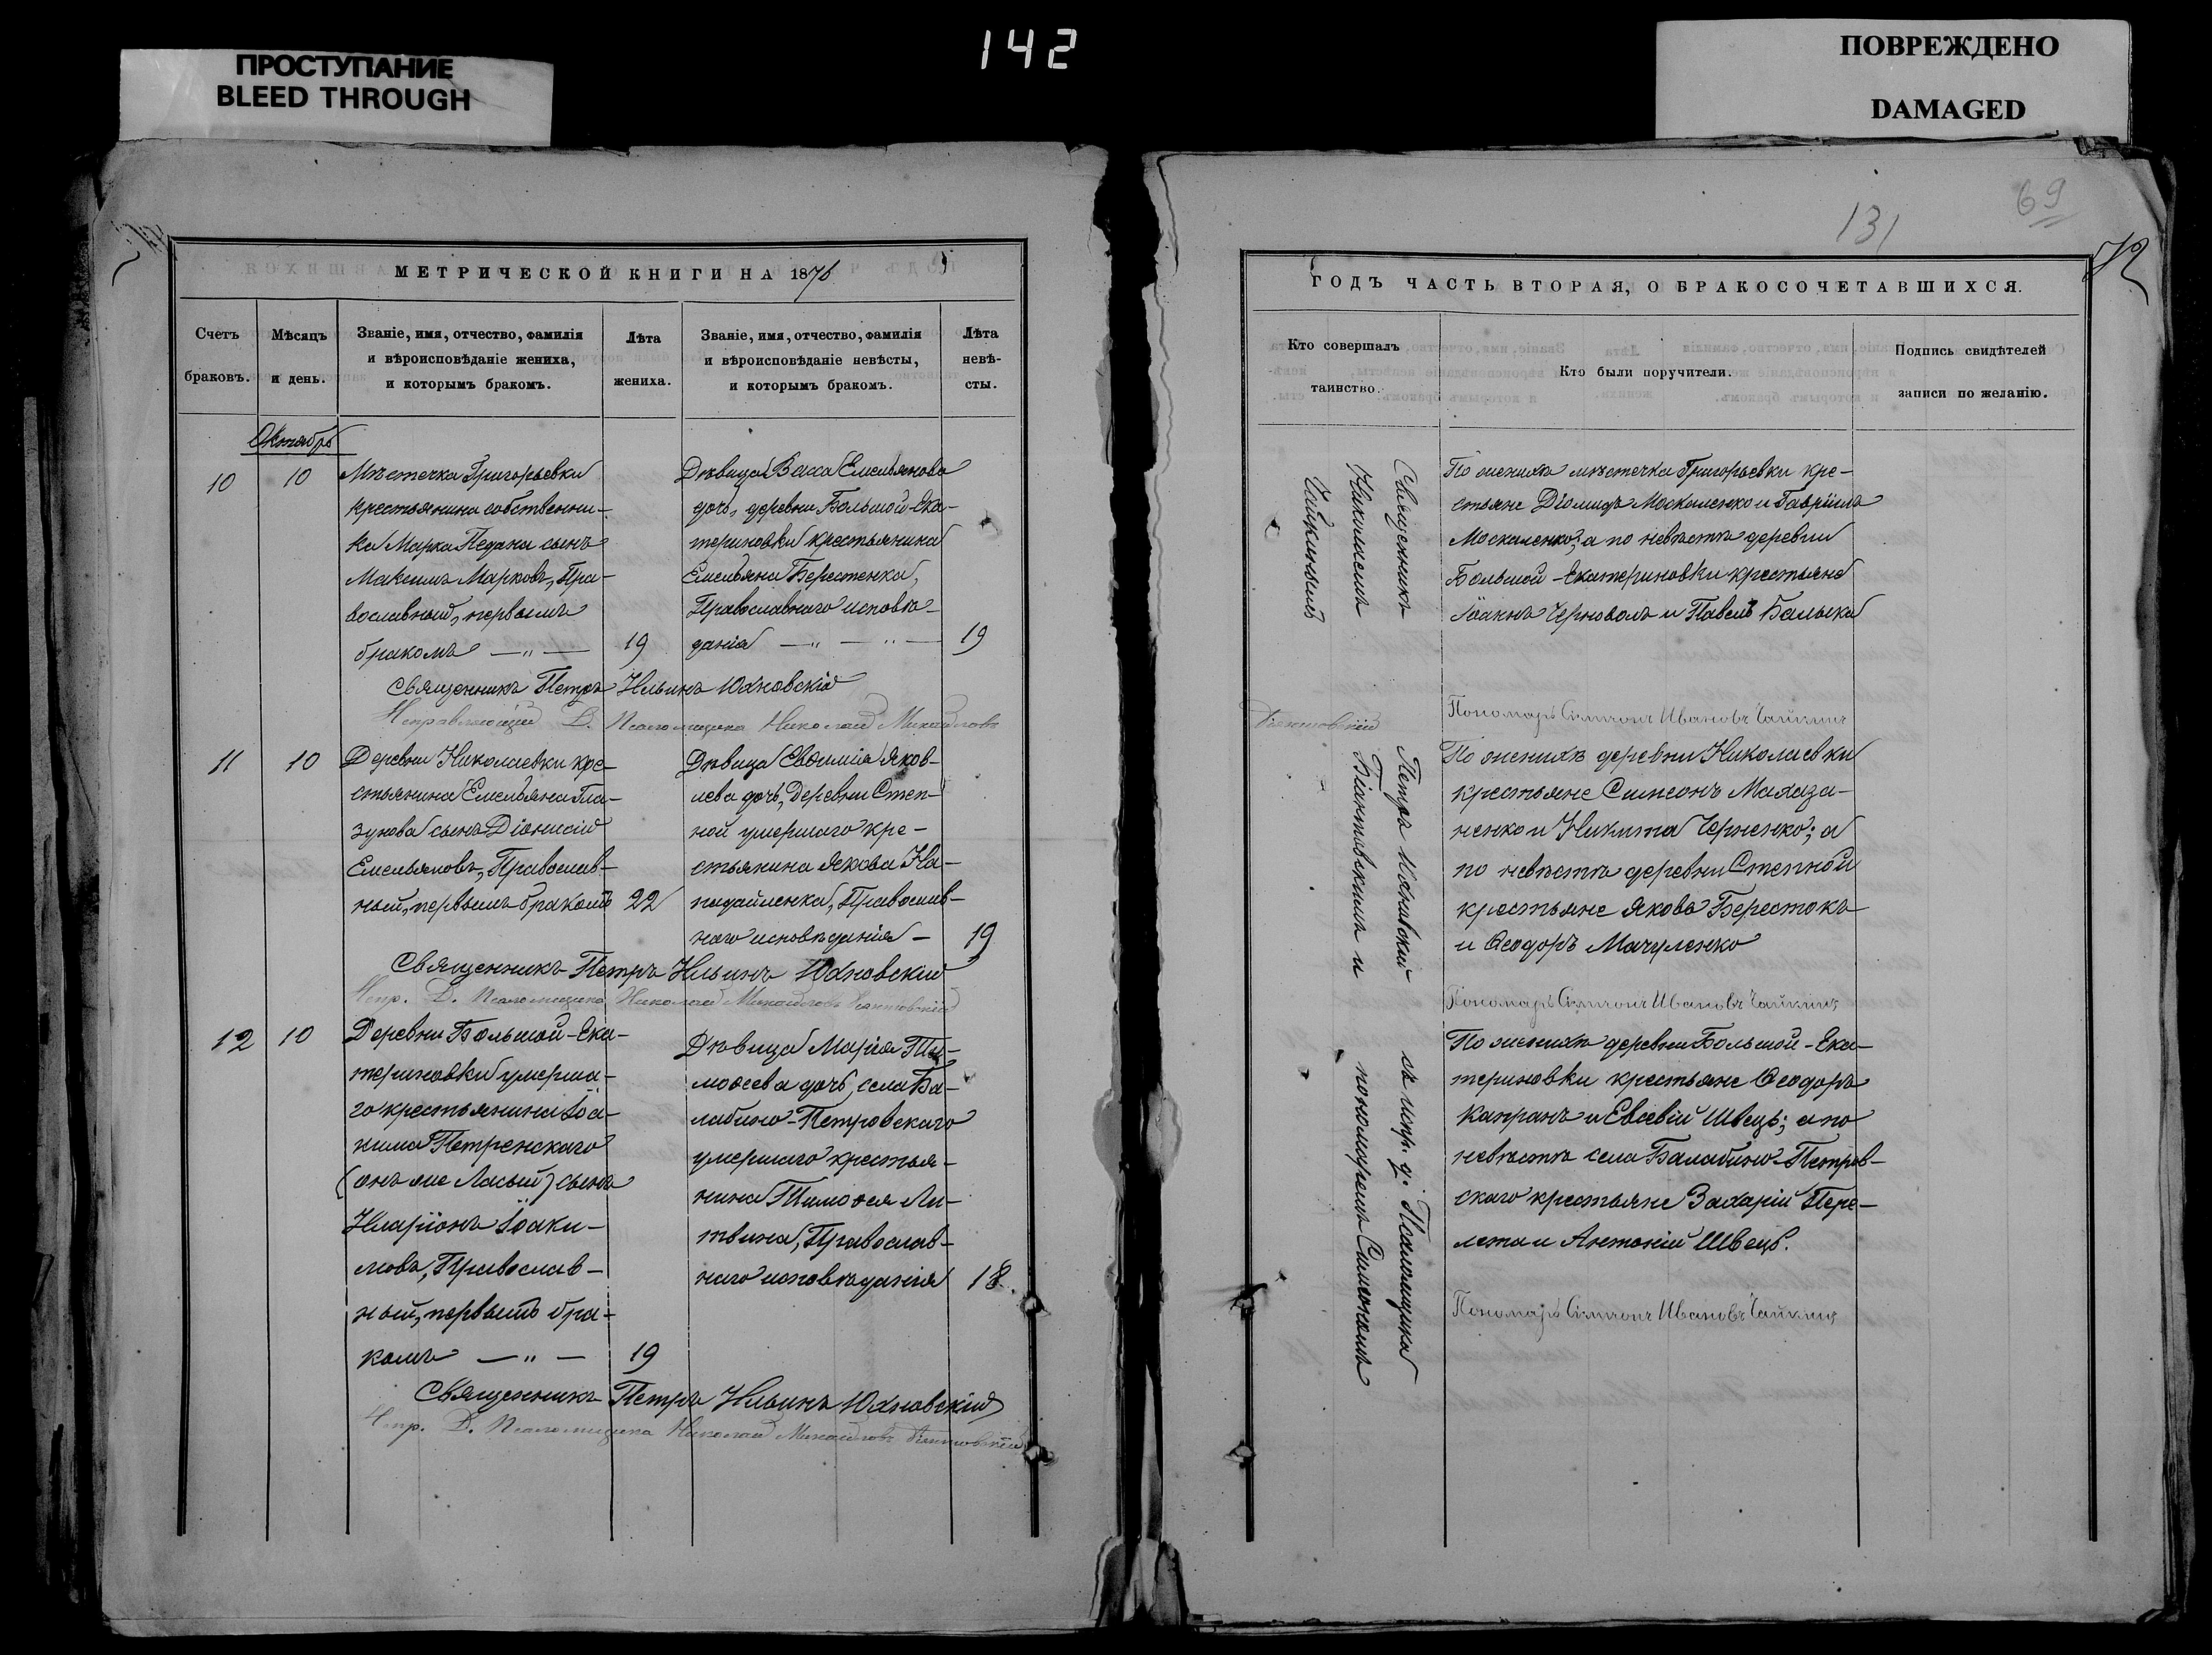 142
ПРОСТУПАНИЕ
BLEED THROUGH
ПОВРЕЖДЕНО
DAMAGED
МЕТРИЧЕСКОЙ КНИГИ НА 1876
Счетъ
браковъ.
Мѣсяцъ
и день.
Званіе, имя, отчество, фамилія
и вѣроисповѣданіе жениха,
и которымъ бракомъ.
Лѣта
жениха.
Званіе, имя, отчество, фамилія
и вѣроисповѣданіе невѣсты,
и которымъ бракомъ.
Лѣта
невѣ-
сты.
Октябрь
10
10
Мѣстечка Григорьевки
крестьянина собственни-
ка Марка Педана сынъ
Максимъ Марковъ, Пра-
вославный, первымъ
бракомъ — „ —
19
Дѣвица Васса Емельянова
дочь, деревни Большой-Ека-
териновки крестьянина
Емельяна Берестенка,
Православнаго исповѣ-
данія — „ — „ —
19
Священникъ Петръ Ильинъ Юхновскій
Исправляющій Д. Псаломщика Николай Михайловъ
11
10
Деревни Николаевки кре-
стьянина Емельяна Гла-
зунова сынъ Діонисій
Емельяновъ, Православ-
ный, первымъ бракомъ
22
Дѣвица Евѳимія Яков-
лева дочь, Деревни Степ-
ной умершаго кре-
стьянина Якова На-
гайленка, Православ-
наго исповѣданія —
19
Священникъ Петръ Ильинъ Юхновскій
Испр. Д. Псаломщика Николай Михайловъ Біантовскій
12
10
Деревни Большой-Ека-
териновки умерша-
го крестьянина Іоа-
кима Петренскаго
(онъ же Ласый) сынъ
Иларіонъ Іоаки-
мовъ, Православ-
ный, первымъ бра-
комъ — „ —
19
Дѣвица Марія Ти-
моѳеева дочь, села Ба-
лабино-Петровскаго
умершаго крестья-
нина Тимоѳея Ли-
твина, Православ-
наго исповѣданія
18.
Священникъ Петръ Ильинъ Юхновскій
Испр. Д. Псаломщика Николай Михайловъ Біантовскій
131
69
72
ГОДЪ ЧАСТЬ ВТОРАЯ, О БРАКОСОЧЕТАВШИХСЯ.
Кто совершалъ
таинство.
Кто были поручители.
Подпись свидѣтелей
записи по желанію.
Священникъ Петръ Юхновскій съ испр. д. Псаломщика
Николаемъ Біантовскимъ и пономаремъ Симеономъ
Чайкинымъ
По женихѣ мѣстечка Григорьевки кре-
стьяне Діомидъ Москаленко и Гавріилъ
Москаленко; а по невѣстѣ деревни
Большой-Екатериновки крестьяне
Іоаннъ Черноволъ и Павелъ Балыка
Біантовскій
Пономарь Симеонъ Ивановъ Чайкинъ
По женихѣ деревни Николаевки
крестьяне Симеонъ Махаза-
ненко и Никита Черненко; а
по невѣстѣ деревни Степной
крестьяне Яковъ Берестокъ
и Ѳеодоръ Мачуленко
Пономарь Симеонъ Ивановъ Чайкинъ
По женихѣ деревни Большой-Ека-
териновки крестьяне Ѳеодоръ
Капранъ и Евсевій Швецъ; а по
невѣстѣ села Балабино-Петров-
скаго крестьяне Захарій Пере-
лета и Антоній Швецъ.
Пономарь Симеонъ Ивановъ Чайкинъ